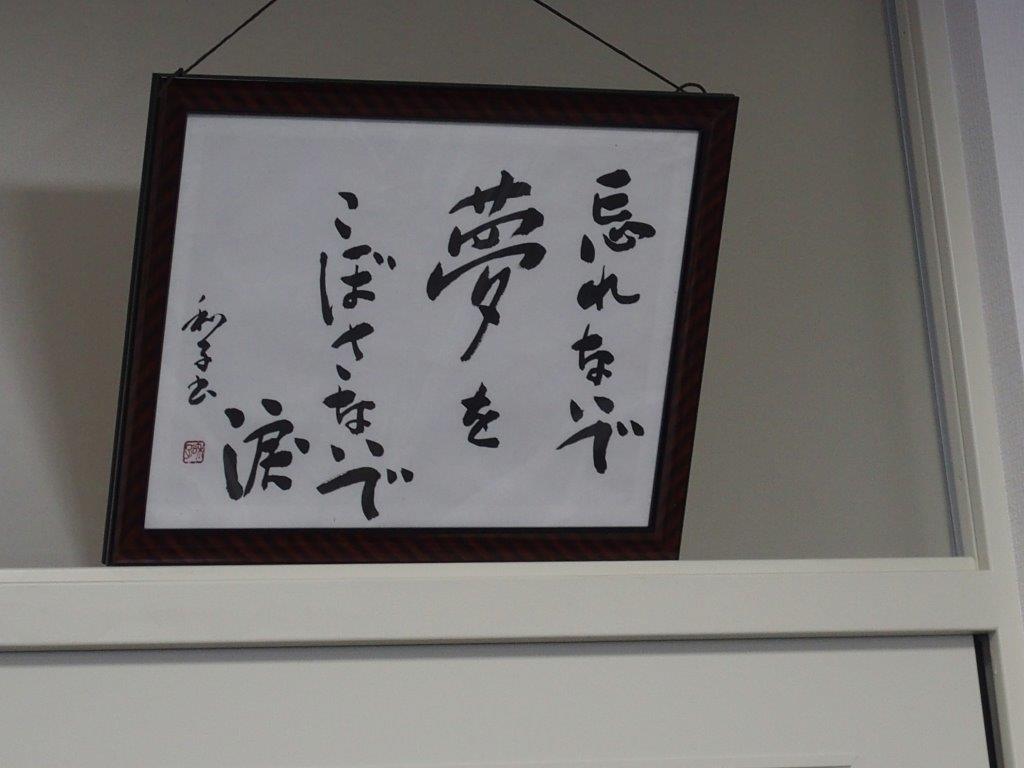 忘れないで
夢を
こぼさないで
涙
和子書